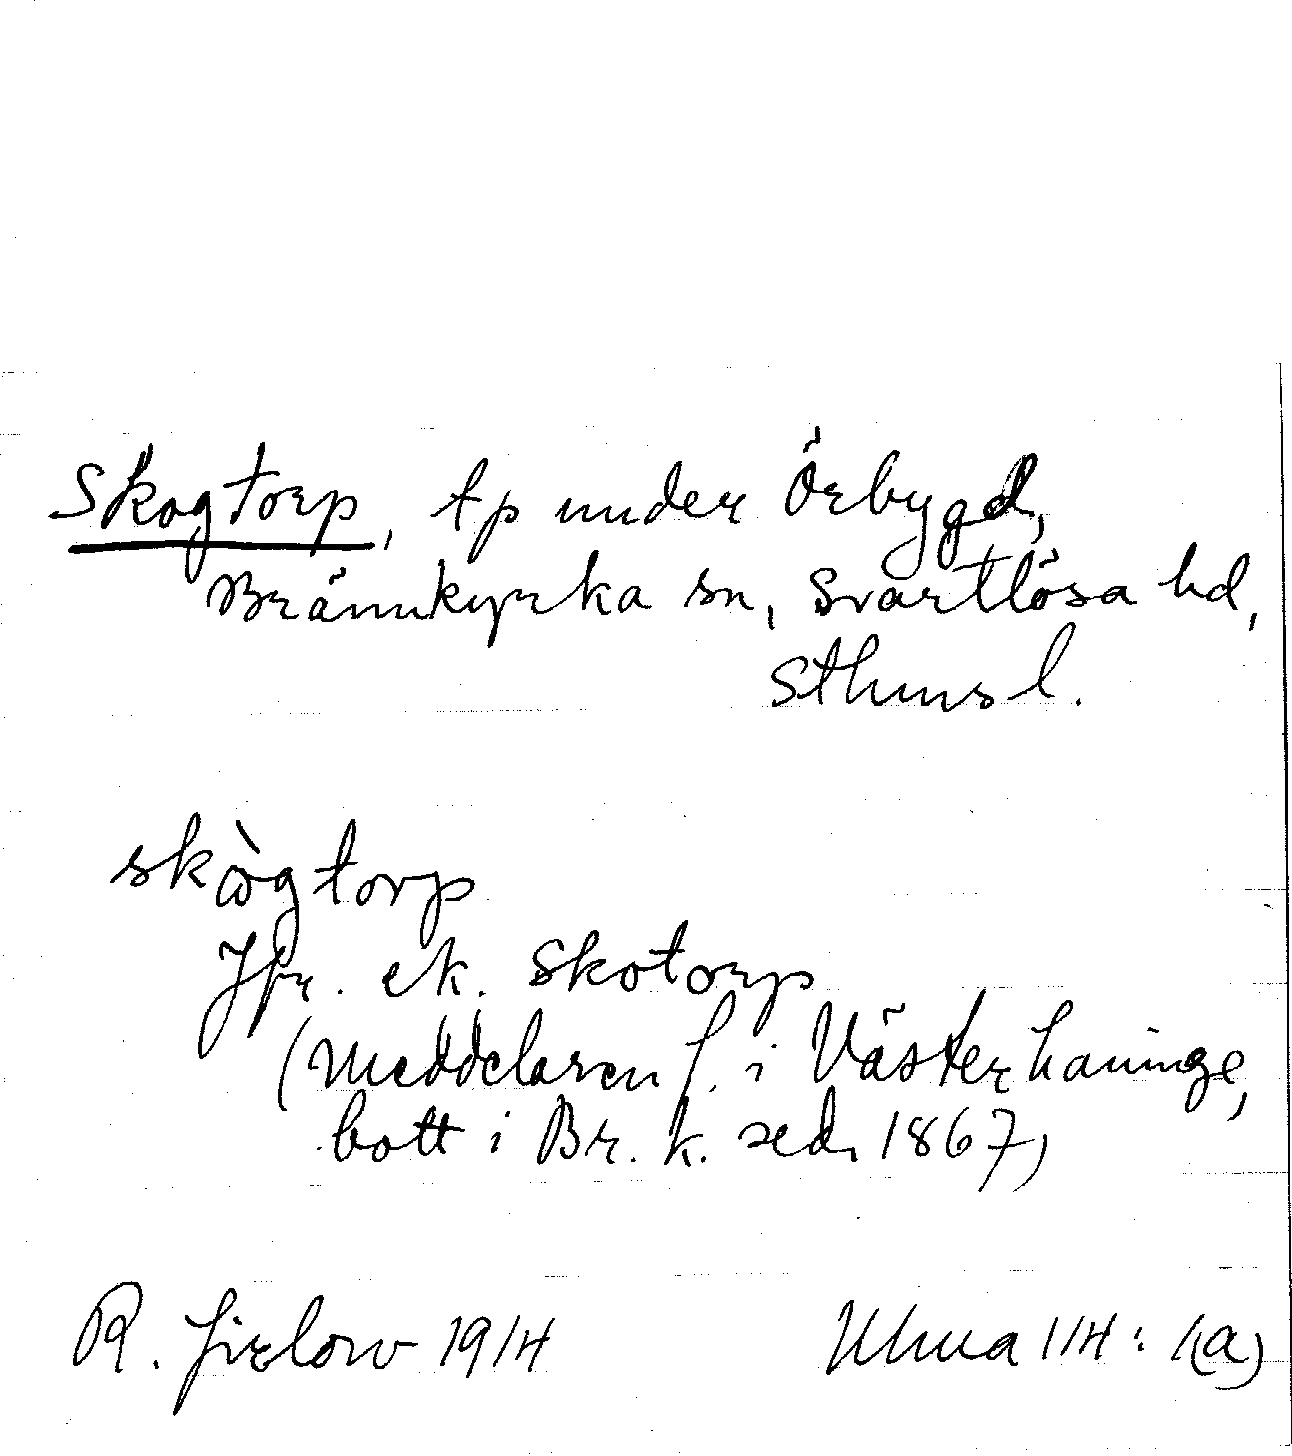 Skogtorp, tp under Örbygd,
Brännkyrka sn, Svartlösa hd,
Sthms l.
skògtorp
Jfr. ek. Skotorp
(Meddelaren f. i Västerhaninge,
bott i Br. k. sed. 1867)
R. Jirlow 1914
Ulma 114: 1(a)